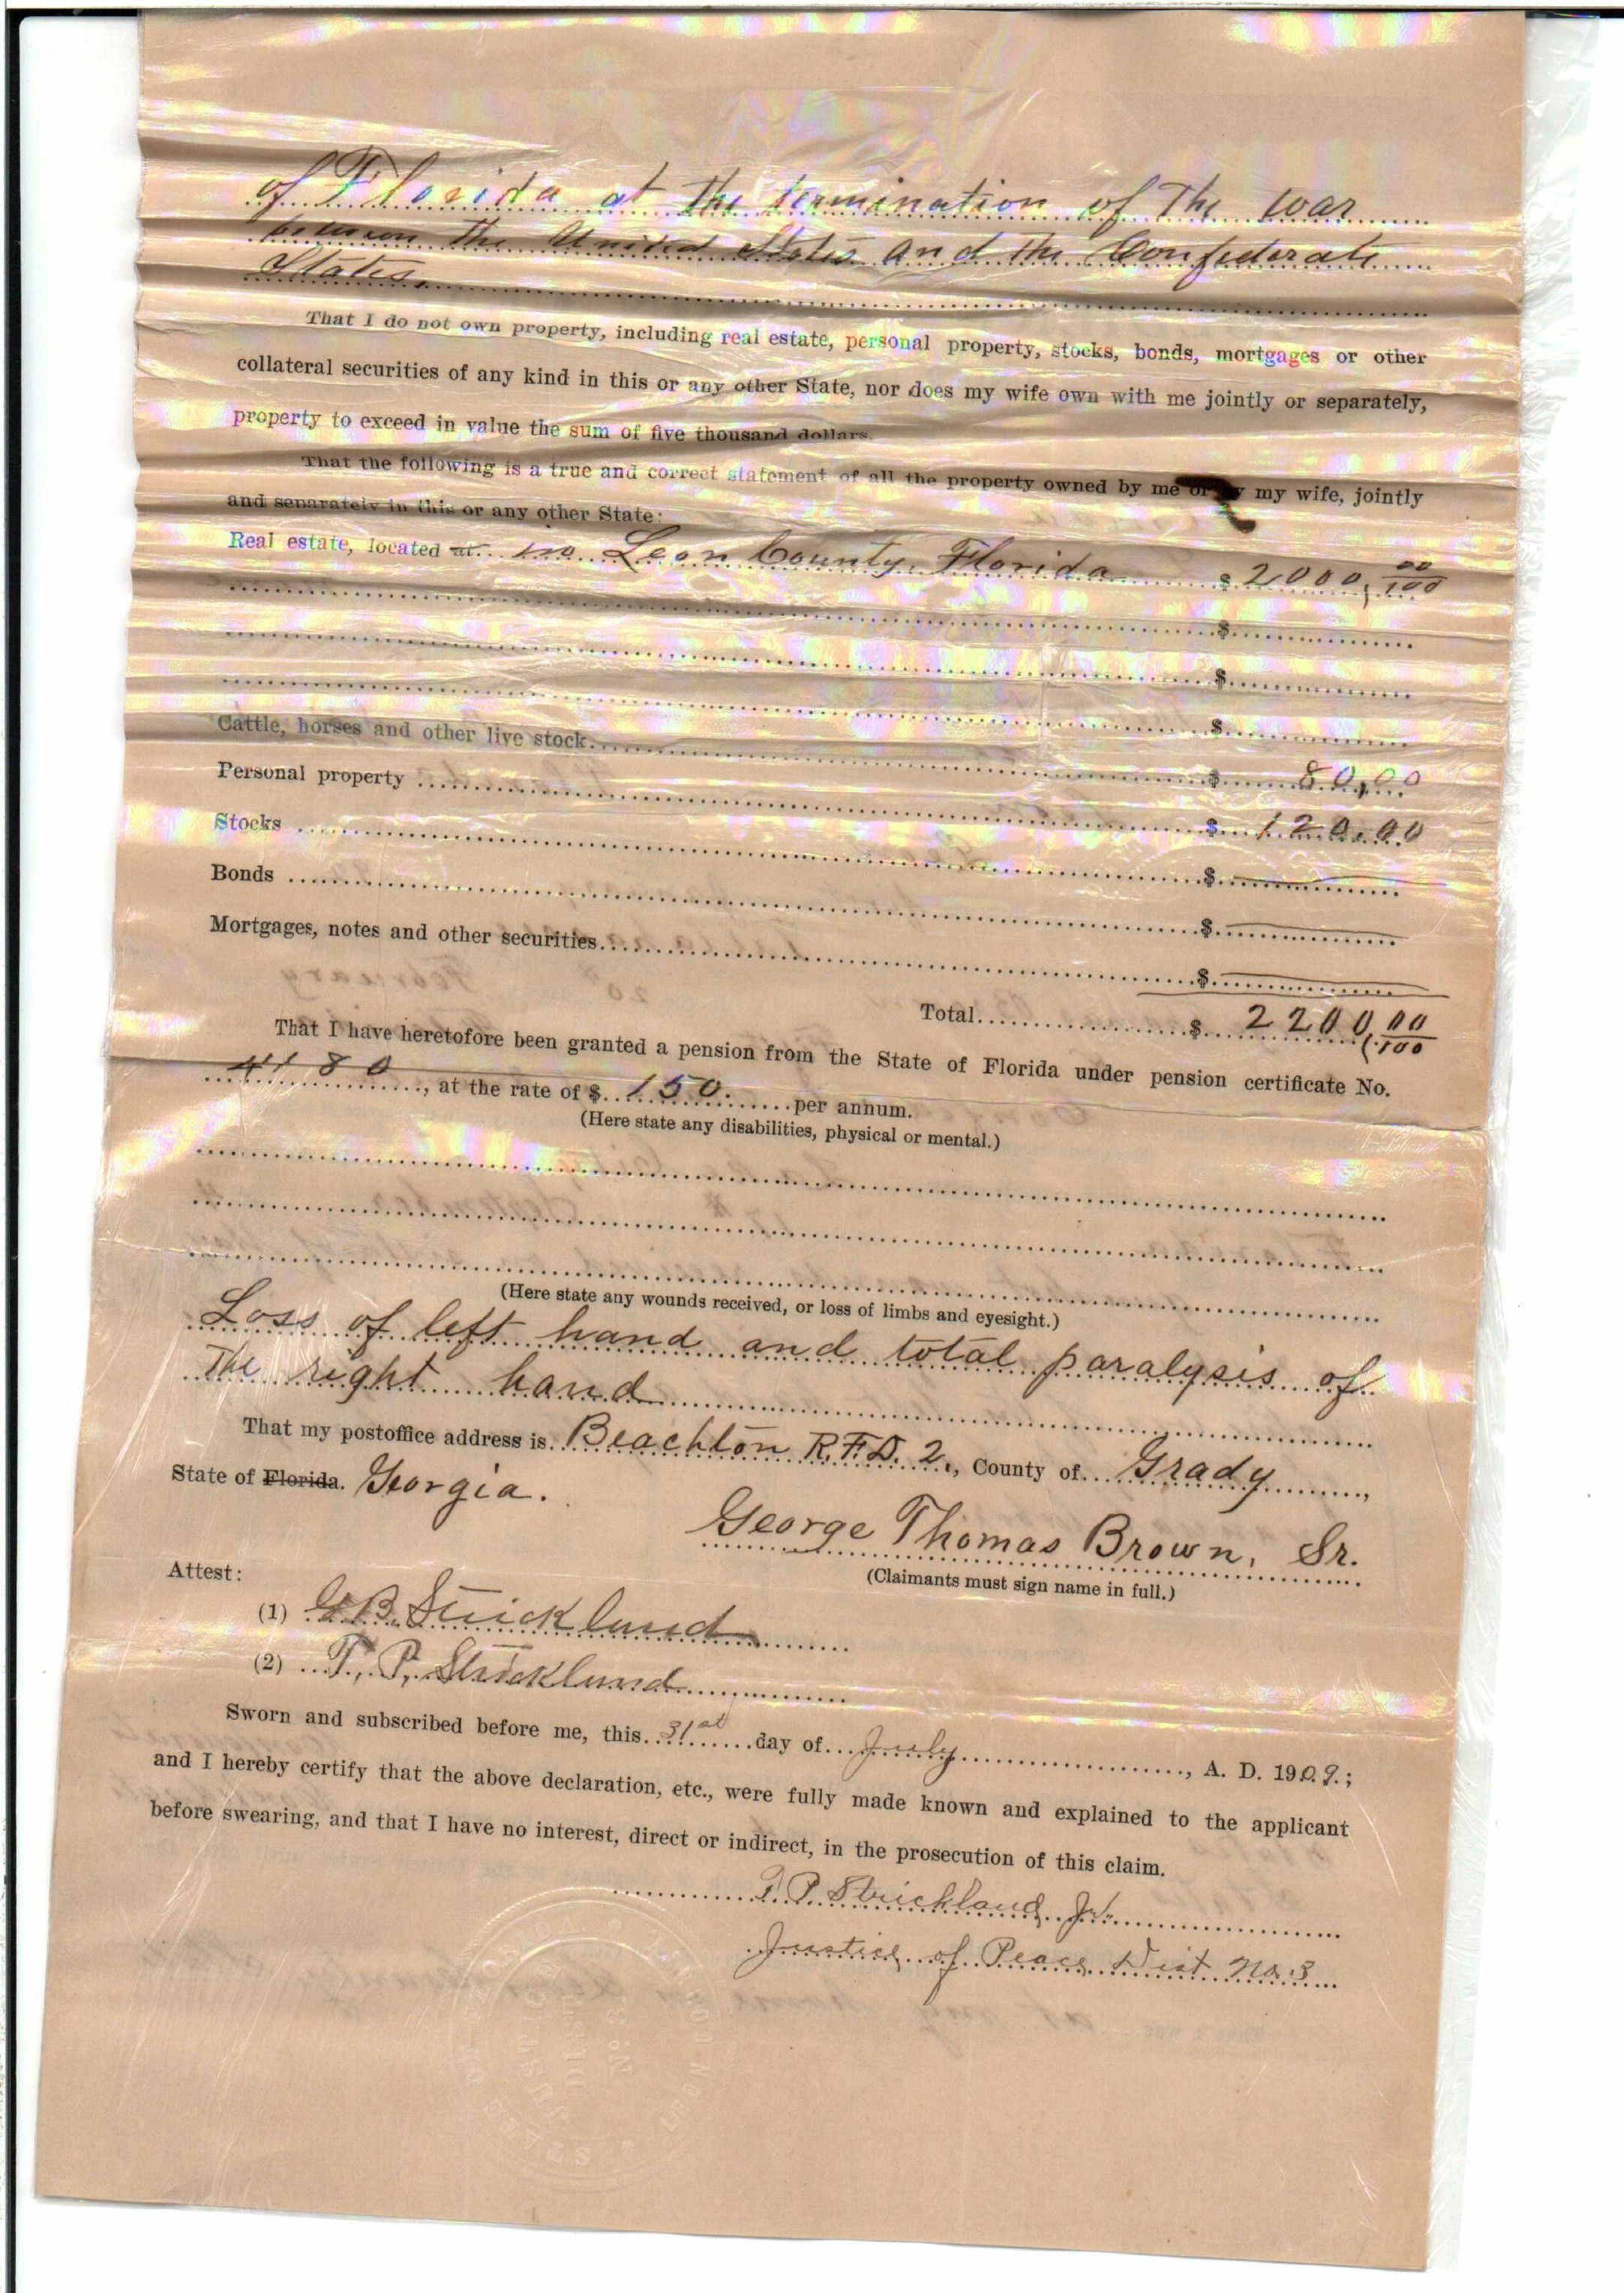 of Florida at the termination of the war
between the United States and the Confederate
States.
That I do not own property, including real estate, personal property, stocks, bonds, mortgages or other
collateral securities of any kind in this or any other State, nor does my wife own with me jointly or separately,
property to exceed in value the sum of five thousand dollars.
That the following is a true and correct statement of all the property owned by me or by my wife, jointly
and separately in this or any other State:
Real estate, located at in Leon County, Florida $ 2000, 00/100
$
$
$
Cattle, horses and other live stock $ 80,00
Personal property $ 120.00
Stocks $
Bonds $
Mortgages, notes and other securities $
Total $ 2200, 00/100
That I have heretofore been granted a pension from the State of Florida under pension certificate No.
4180, at the rate of $ 150. per annum.
(Here state any disabilities, physical or mental.)
(Here state any wounds received, or loss of limbs and eyesight.)
Loss of left hand and total paralysis of
the right hand
That my postoffice address is Beachton R.F.D. 2., County of Grady,
State of Florida. Georgia.
George Thomas Brown, Sr.
(Claimants must sign name in full.)
Attest:
(1) G B. Strickland
(2) T. P. Strickland
Sworn and subscribed before me, this 31st day of July, A. D. 1909.;
and I hereby certify that the above declaration, etc., were fully made known and explained to the applicant
before swearing, and that I have no interest, direct or indirect, in the prosecution of this claim.
T P Strickland Jr.
Justice of Peace Dist No. 3